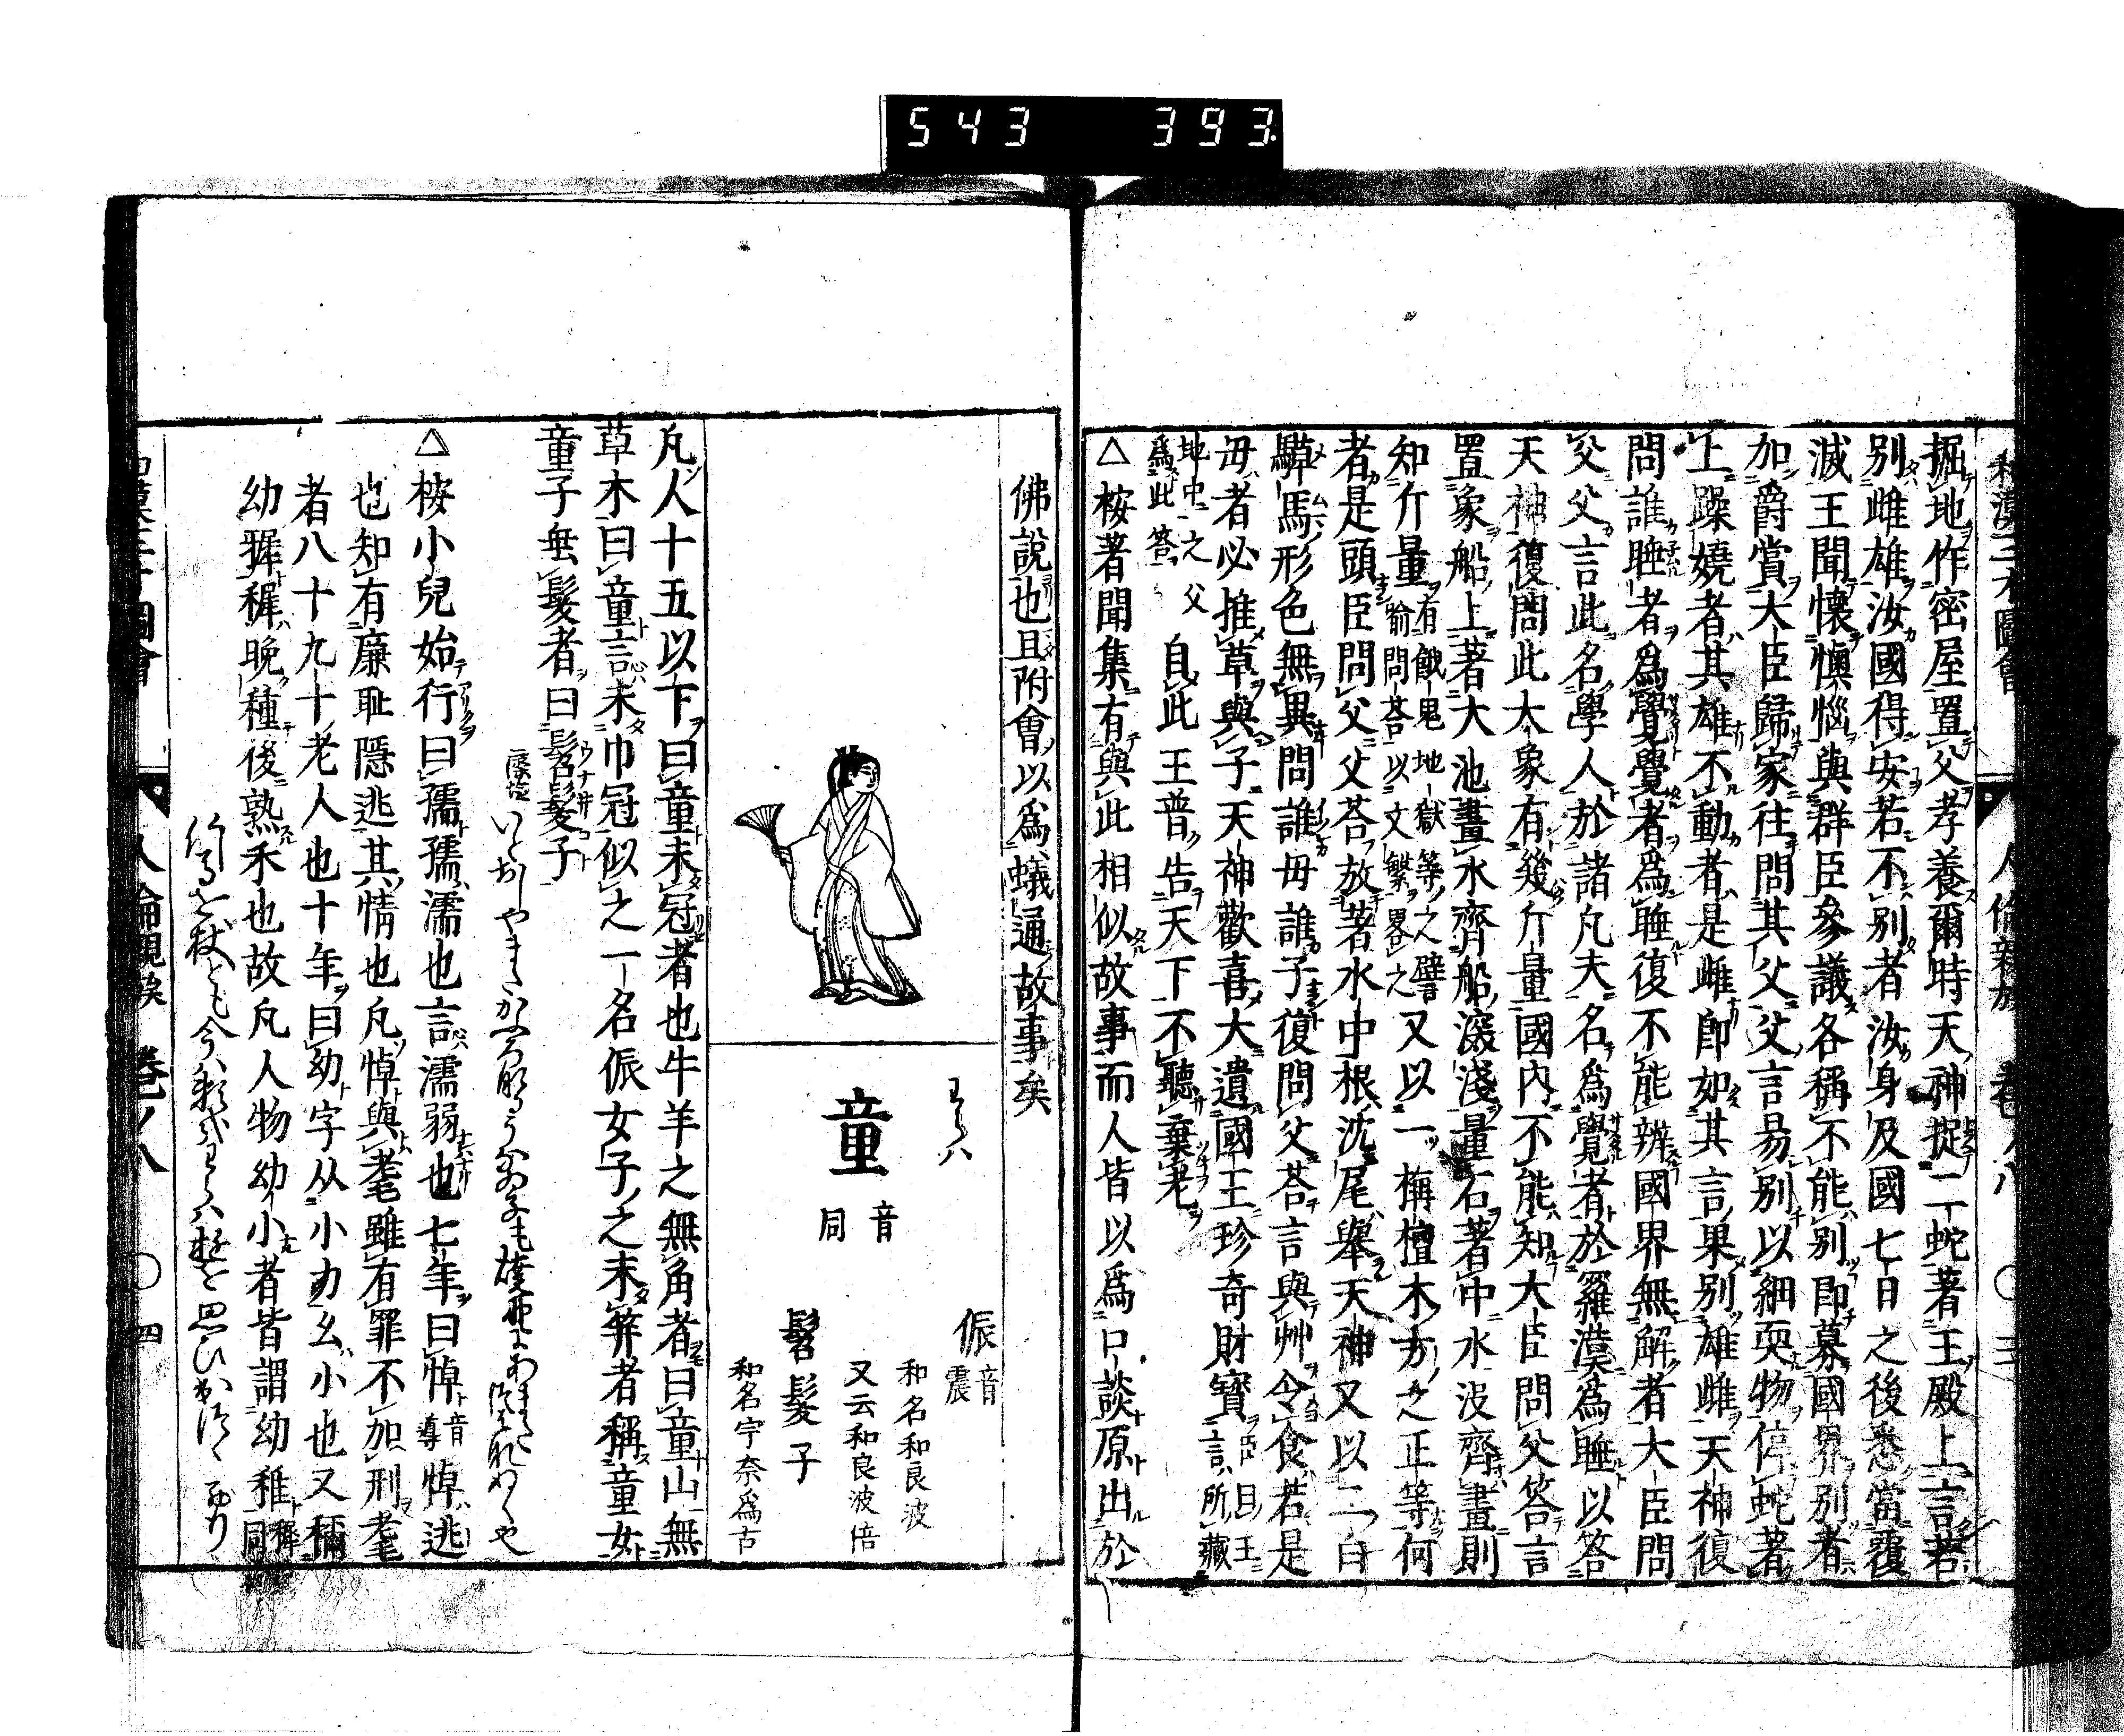 543 393
和漢三才圖會 人倫親族 卷ノ八 〇三
掘地作密屋置父孝養爾時天神捉二蛇著王殿上言若
別雌雄汝國得安若不別者汝身及國七日之後悉當覆
滅王聞懷懊惱與群臣參議各稱不能別即募國界別者
加爵賞大臣歸家往問其父父言易別以細耎物停蛇著
上躁嬈者其雄不動者是雌即如其言果別雄雌天神復
問誰睡者爲覺覺者爲睡復不能辨國界無解者大臣問
父父言此名學人於諸凡夫名爲覺者於羅漢爲睡以答
天神復問此大象有幾斤量國內不能知大臣問父答言
置象船上著大池畫水齊船深淺量石著中水沒齊畫則
知斤量有餓鬼地獄等之譬喻問荅以文繁畧之又以一栴檀木方之正等何
者是頭臣問父父荅放著水中根沈尾舉天神又以二白
騲馬形色無異問誰母誰子復問父荅言與艸令食若是
母者必推草與子天神歡喜大遺國王珍奇財寶臣曰王言所藏
地中之父爲此答自此王普告天下不聽棄老
△桉著聞集有與此相似故事而人皆以爲口談原出於
佛說也且附會以爲蟻通故事矣
わらハ
童
音同
侲
音震
和名和良波
又云和良波倍
髫髮子
和名宇奈爲古
凡人十五以下曰童未冠者也牛羊之無角者曰童山無
草木曰童言未巾冠似之一名侲女子之未筓者稱童女
童子無髮者曰髫髮子
△桉小兒始行曰孺孺濡也言濡弱也七年曰悼音導悼逃
也知有廉耻隱逃其情也凡悼與耄雖有罪不加刑耄
者八十九十老人也十年曰幼字从小力幺小也又禰
幼穉穉晩種後熟禾也故凡人物幼小者皆謂幼稚穉同
和漢三才圖會 人倫親族 卷ノ八 〇四